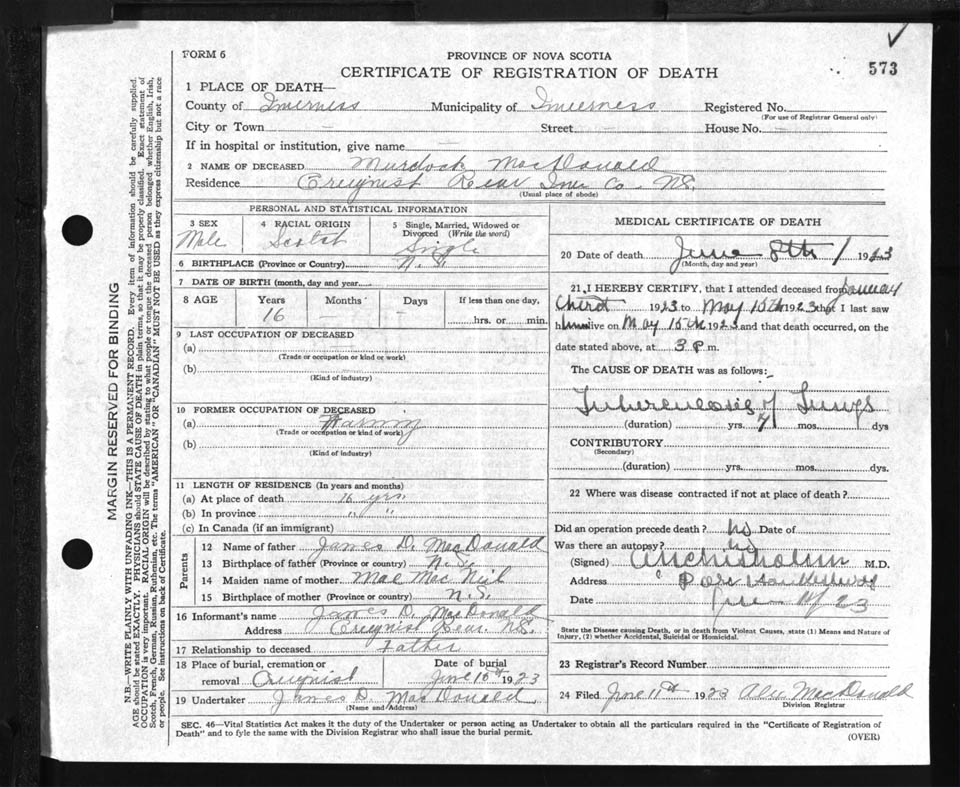 FORM 6
PROVINCE OF NOVA SCOTIA
CERTIFICATE OF REGISTRATION OF DEATH
573
1 PLACE OF DEATH—
County of Inverness Municipality of Inverness Registered No.
(For use of Registrar General only)
City or Town — Street — House No. —
If in hospital or institution, give name —
2 NAME OF DECEASED Murdock MacDonald
Residence Creignist Rear Inv. Co. N.S.
(Usual place of abode)
PERSONAL AND STATISTICAL INFORMATION
3 SEX 4 RACIAL ORIGIN 5 Single, Married, Widowed or
Divorced (Write the word)
Male Scotch Single
6 BIRTHPLACE (Province or Country) N.S.
7 DATE OF BIRTH (month, day and year)
8 AGE Years Months Days If less than one day,
16 — — hrs. or min.
9 LAST OCCUPATION OF DECEASED
(a)
(Trade or occupation or kind of work)
(b)
(Kind of industry)
10 FORMER OCCUPATION OF DECEASED
(a) Farming
(Trade or occupation or kind of work)
(b)
(Kind of industry)
11 LENGTH OF RESIDENCE (In years and months)
(a) At place of death 16 yrs
(b) In province " "
(c) In Canada (if an immigrant)
Parents
12 Name of father James D. MacDonald
13 Birthplace of father (Province or country) N.S.
14 Maiden name of mother Mae Mac Neil
15 Birthplace of mother (Province or country) N.S.
16 Informant's name James D. MacDonald
Address Creignist Rear N.S.
17 Relationship to deceased Father
18 Place of burial, cremation or Date of burial
removal Creignist June 10th 1923
19 Undertaker James D. MacDonald
(Name and Address)
MEDICAL CERTIFICATE OF DEATH
20 Date of death June 8th 1923
(Month, day and year)
21 I HEREBY CERTIFY, that I attended deceased from January
1923 to May 15th 1923 that I last saw
him alive on May 15th 1923 and that death occurred, on the
date stated above, at 3 P. m.
The CAUSE OF DEATH was as follows:
Tuberculosis of Lungs
(duration) yrs. mos. dys
CONTRIBUTORY
(Secondary)
(duration) yrs. mos. dys.
22 Where was disease contracted if not at place of death?
Did an operation precede death? No Date of
Was there an autopsy? No
(Signed) Chisholm M.D.
Address Port Hawkesbury
Date 23
State the Disease causing Death, or in death from Violent Causes, state (1) Means and Nature of
Injury, (2) whether Accidental, Suicidal or Homicidal.
23 Registrar's Record Number
24 Filed June 11th 1923 MacDonald
Division Registrar
SEC. 46—Vital Statistics Act makes it the duty of the Undertaker or person acting as Undertaker to obtain all the particulars required in the "Certificate of Registration of
Death" and to fyle the same with the Division Registrar who shall issue the burial permit.
(OVER)
MARGIN RESERVED FOR BINDING
N.B.—WRITE PLAINLY WITH UNFADING INK—THIS IS A PERMANENT RECORD. Every item of information should be carefully supplied.
AGE should be stated EXACTLY. PHYSICIANS should STATE CAUSE OF DEATH in plain terms, so that it may be properly classified. Exact statement of
OCCUPATION is very important. RACIAL ORIGIN will be described by stating to what people or tongue the deceased person belonged whether English, Irish,
Scotch, French, German, Russian, Ruthenian, etc. The terms "AMERICAN" OR "CANADIAN" MUST NOT BE USED as they express citizenship but not a race
or people. See instructions on back of Certificate.